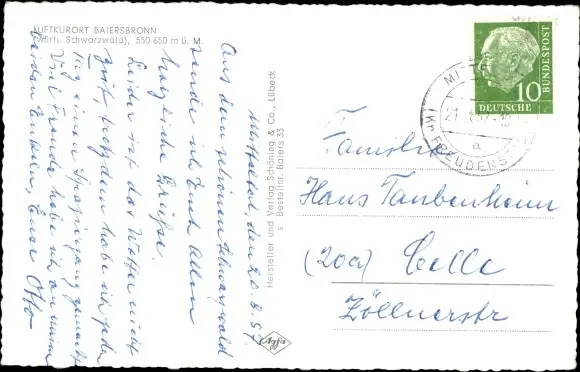 LUFTKURORT BAIERSBRONN
(Württ. Schwarzwald), 550-650 m ü. M.
Mitteltal, den 20.8.57
Aus dem schönen Schwarzwald
sende ich Euch Allen
herzliche Grüße.
Leider ist das Wetter nicht
gut, trotzdem habe ich jeden
Tag einen Spaziergang gemacht
Viel Freude habe ich an meinen
beiden Enkeln, Euer Otto
Hersteller und Verlag Schöning & Co., Lübeck
s Bestellnr. Baiers 33
Agfa
10
DEUTSCHE
BUNDESPOST
MITT
21.
a
(KR FREUDENS
Familie
Hans Taubenheim
(20a) Celle
Zöllnerstr